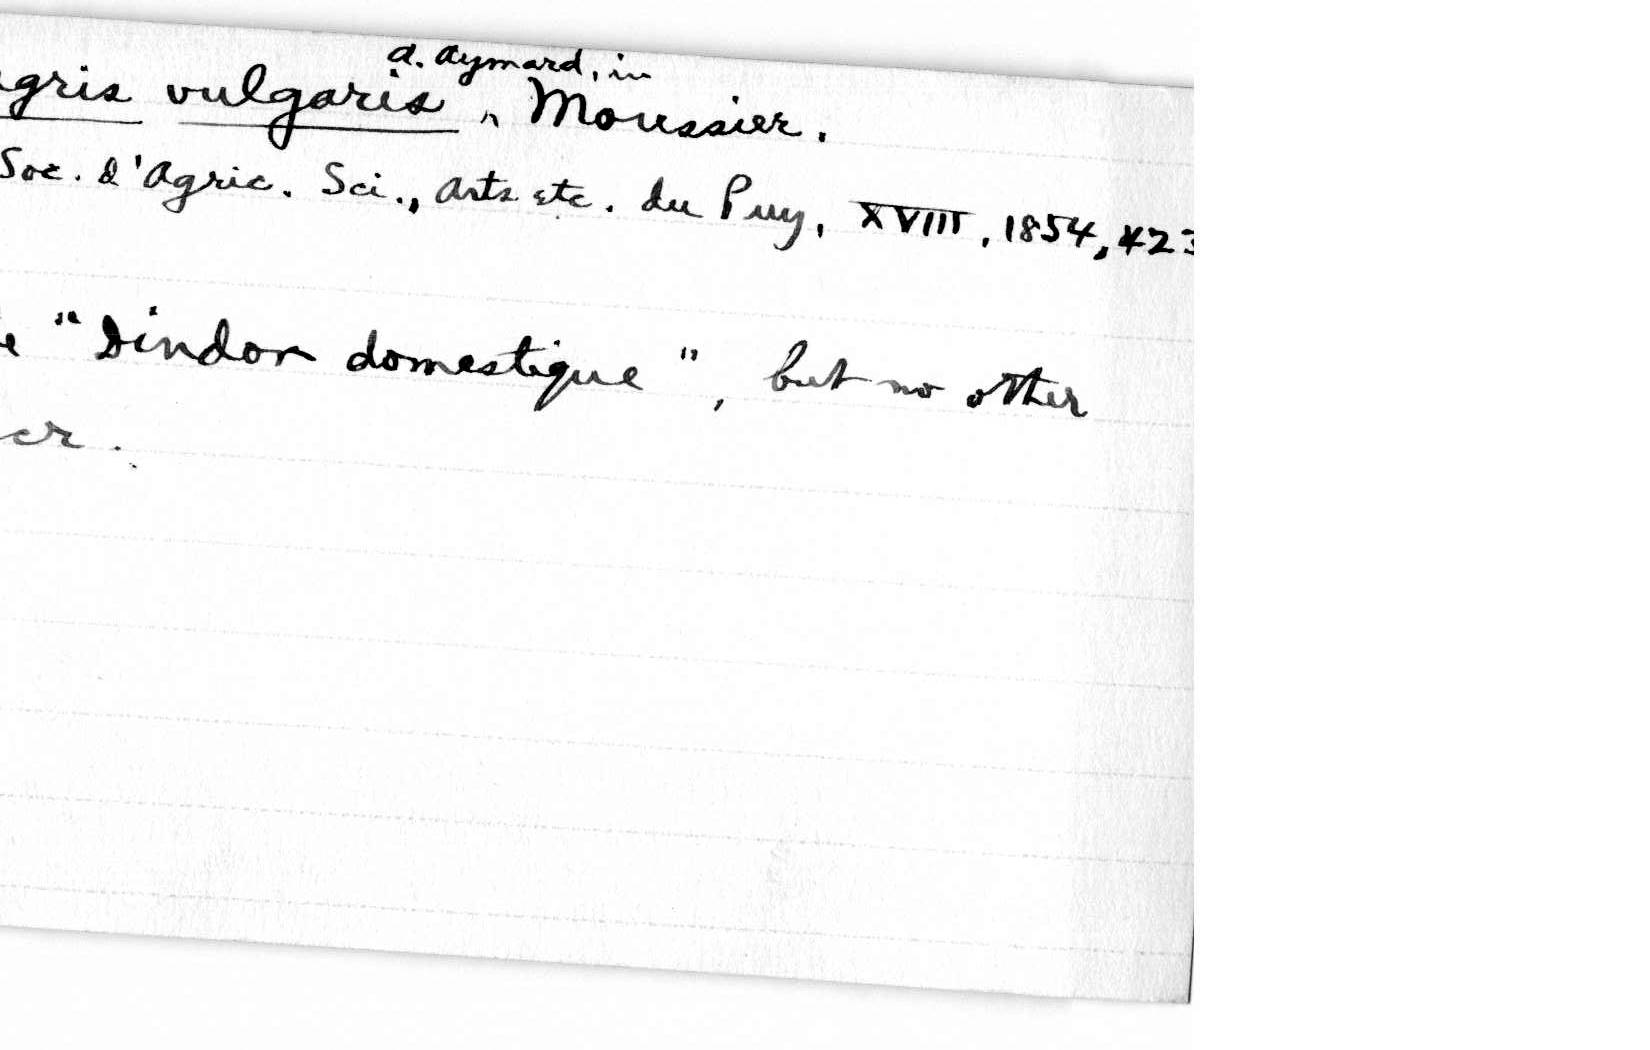 a. Aymard, in
gris vulgaris ^ Moussier.
Soc. d'Agric. Sci., Arts etc. du Puy, XVIII, 1854, 423
"Dindon domestique", but no other
er.